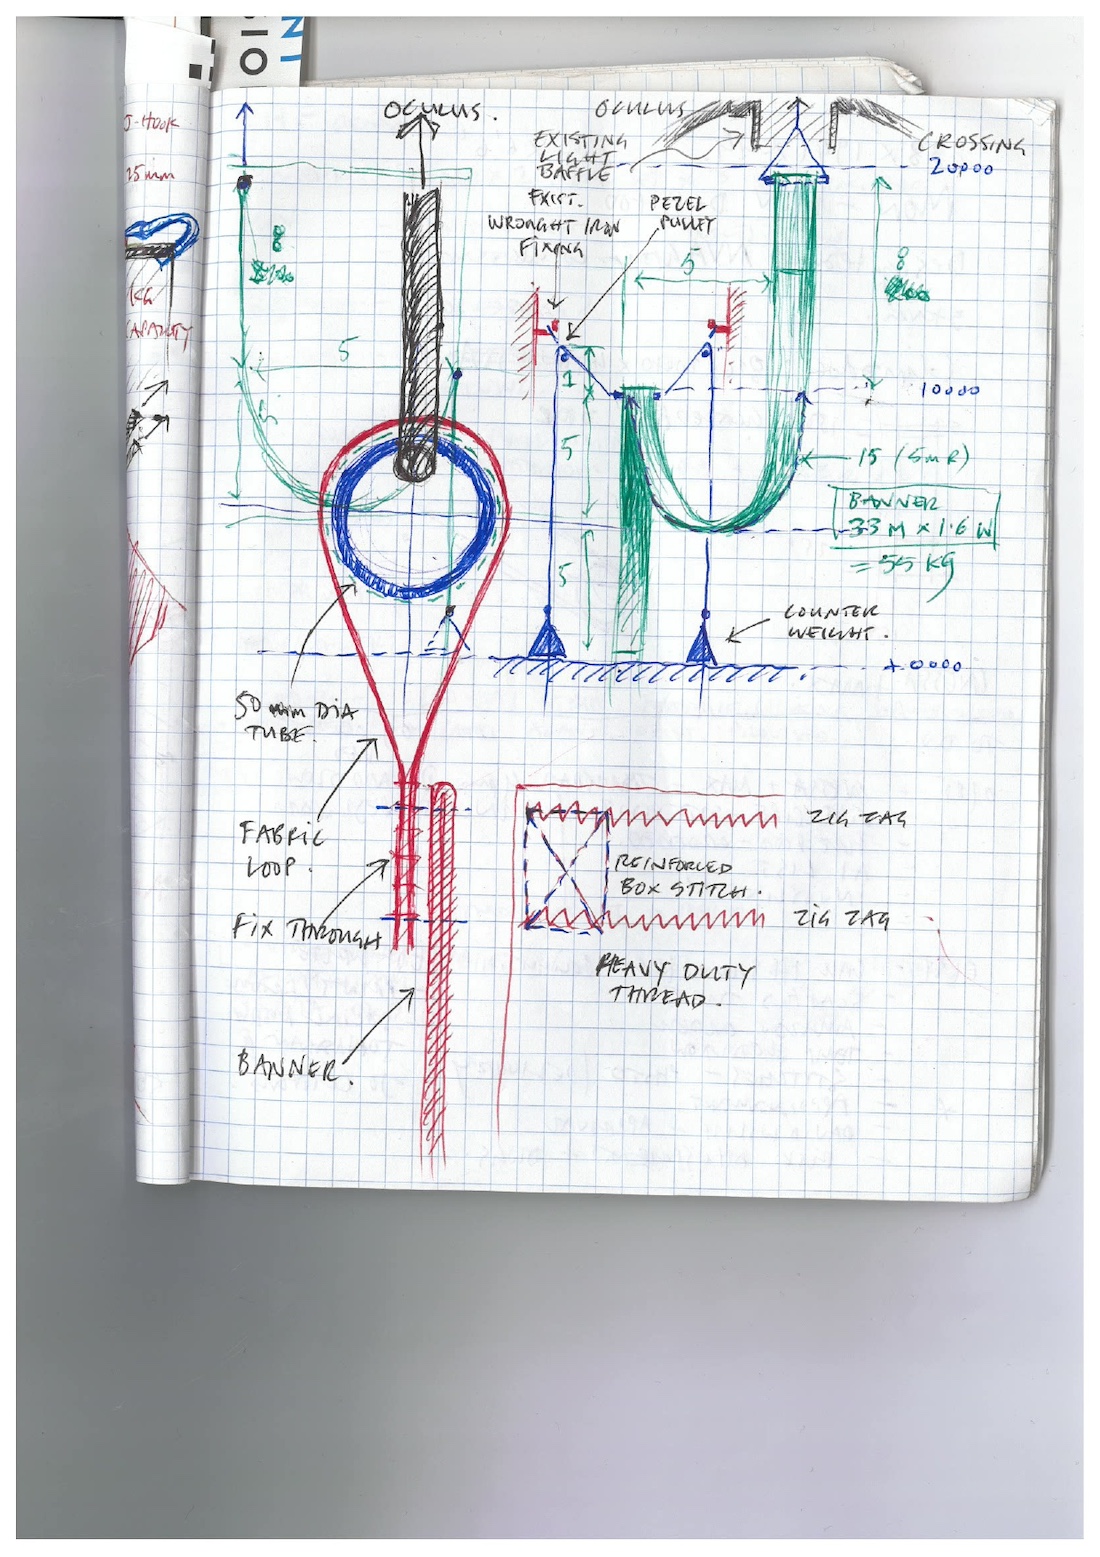 J-HOOK
25mm
OCULUS.
OCULUS
EXISTING
LIGHT
BAFFLE
CROSSING
20000
EXIST.
WROUGHT IRON
FIXING
PEZEL
PULLEY
8
5
8
5
1
10000
5
15 (5m R)
BANNER
33 M x 1.6 W
= 55 KG
5
COUNTER
WEIGHT.
+ 0000
50 mm DIA
TUBE.
ZIG ZAG
FABRIC
LOOP.
REINFORCED
BOX STITCH.
FIX THROUGH
ZIG ZAG
HEAVY DUTY
THREAD.
BANNER.